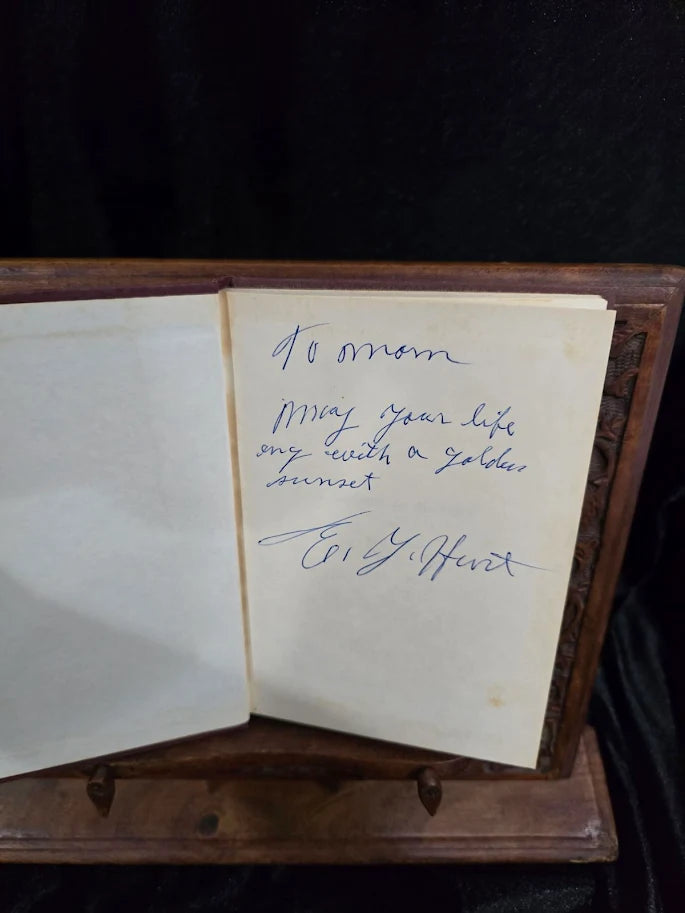 To Mom
May your life
eng with a golden
sunset
E. Y. Hurst